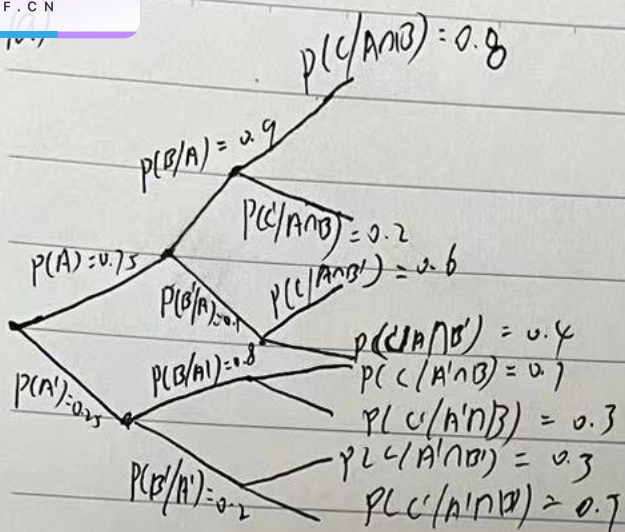 F.CN
P(C/A∩B) = 0.8
P(B/A) = 0.9
P(C'/A∩B) = 0.2
P(A) = 0.75
P(C/A∩B') = 0.6
P(B'/A) = 0.1
P(C'/A∩B') = 0.4
P(B/A') = 0.8
P(C/A'∩B) = 0.7
P(A') = 0.25
P(C'/A'∩B) = 0.3
P(C/A'∩B') = 0.3
P(B'/A') = 0.2
P(C'/A'∩B') = 0.7